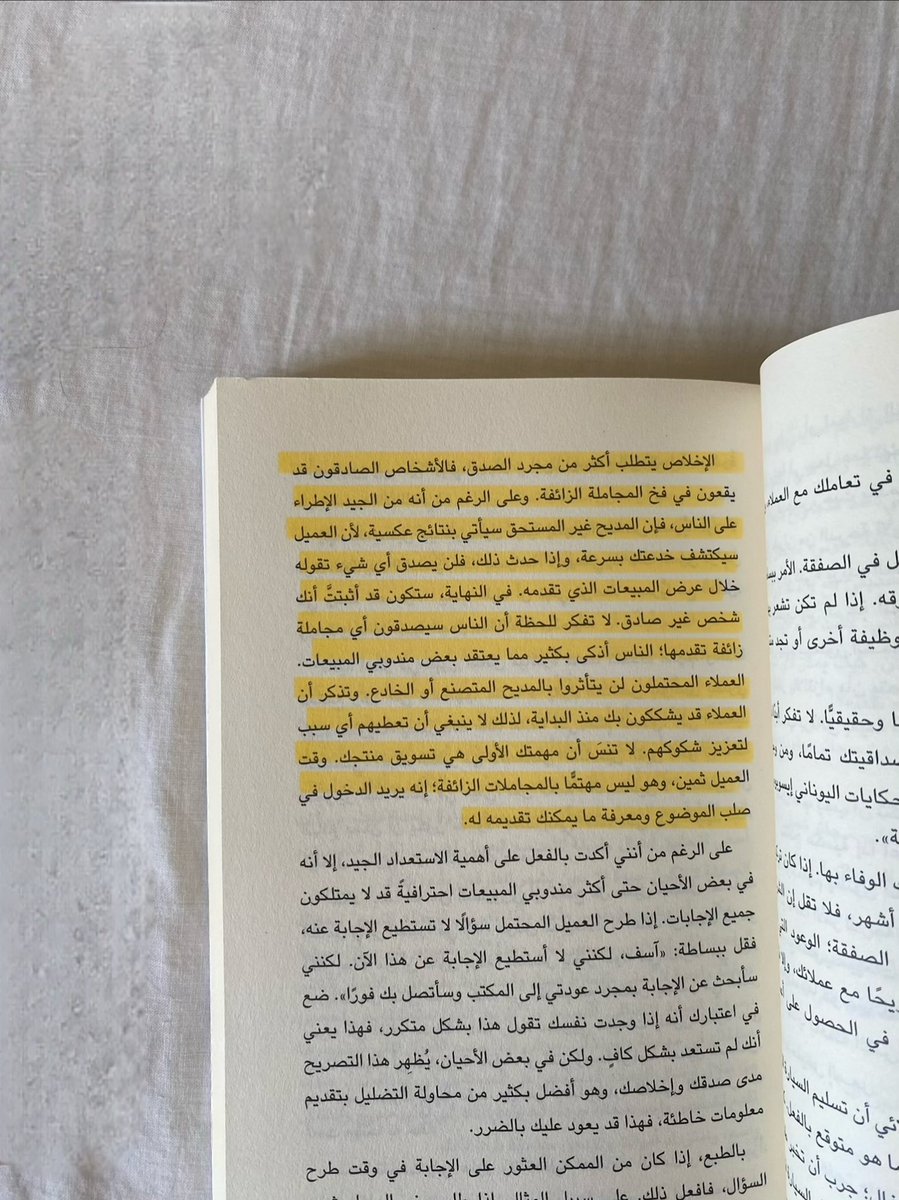 الإخلاص يتطلب أكثر من مجرد الصدق، فالأشخاص الصادقون قد
يقعون في فخ المجاملة الزائفة. وعلى الرغم من أنه من الجيد الإطراء
على الناس، فإن المديح غير المستحق سيأتي بنتائج عكسية، لأن العميل
سيكتشف خدعتك بسرعة، وإذا حدث ذلك، فلن يصدق أي شيء تقوله
خلال عرض المبيعات الذي تقدمه. في النهاية، ستكون قد أثبتَّ أنك
شخص غير صادق. لا تفكر للحظة أن الناس سيصدقون أي مجاملة
زائفة تقدمها؛ الناس أذكى بكثير مما يعتقد بعض مندوبي المبيعات.
العملاء المحتملون لن يتأثروا بالمديح المتصنع أو الخادع. وتذكر أن
العملاء قد يشككون بك منذ البداية، لذلك لا ينبغي أن تعطيهم أي سبب
لتعزيز شكوكهم. لا تنسَ أن مهمتك الأولى هي تسويق منتجك. وقت
العميل ثمين، وهو ليس مهتمًّا بالمجاملات الزائفة؛ إنه يريد الدخول في
صلب الموضوع ومعرفة ما يمكنك تقديمه له.
على الرغم من أنني أكدت بالفعل على أهمية الاستعداد الجيد، إلا أنه
في بعض الأحيان حتى أكثر مندوبي المبيعات احترافيةً قد لا يمتلكون
جميع الإجابات. إذا طرح العميل المحتمل سؤالًا لا تستطيع الإجابة عنه،
فقل ببساطة: «آسف، لكنني لا أستطيع الإجابة عن هذا الآن. لكنني
سأبحث عن الإجابة بمجرد عودتي إلى المكتب وسأتصل بك فورًا». ضع
في اعتبارك أنه إذا وجدت نفسك تقول هذا بشكل متكرر، فهذا يعني
أنك لم تستعد بشكل كافٍ. ولكن في بعض الأحيان، يُظهِر هذا التصريح
مدى صدقك وإخلاصك، وهو أفضل بكثير من محاولة التضليل بتقديم
معلومات خاطئة، فهذا قد يعود عليك بالضرر.
بالطبع، إذا كان من الممكن العثور على الإجابة في وقت طرح
السؤال، فافعل ذلك. على سبيل المثال، إذا
في تعاملك مع العملاء
في الصفقة. الأمر
إذا لم تكن تشعر
أخرى أو تجد
وحقيقيًّا. لا تفكر
تمامًا، ومن
اليوناني
الوفاء بها. إذا كان
أشهر، فلا تقل إن
الصفقة؛ الوعود
مع عملائك،
في الحصول على
أن تسليم السيارة
هو متوقع بالفعل
جرب أن